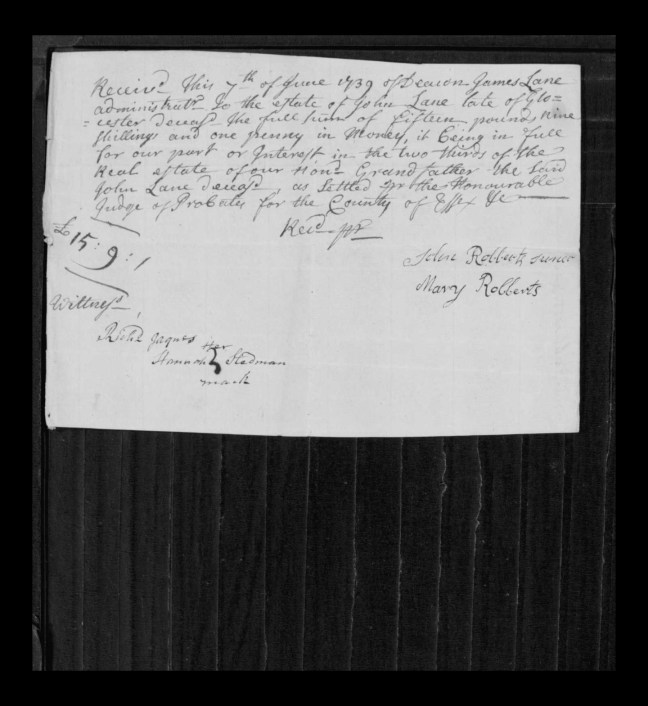 Receiv.d This 7th of June 1739 of Deacon James Lane
administratr. to the estate of John Lane late of Glo=
=cester Deceasd. the full sum of Fifteen pound, nine
shillings and one penny in Money, it being in full
for our part or Interest in the two thirds of the
Real estate of our Hond. Grandfather the said
John Lane Deceasd., as Settled pr the Honourable
Judge of Probates for the County of Essex &c
Recd. pr
£15:9:1
John Robberts Junor
Mary Robberts
Wittness
Richd. Jaques
Her
Hannah Stedman
mark